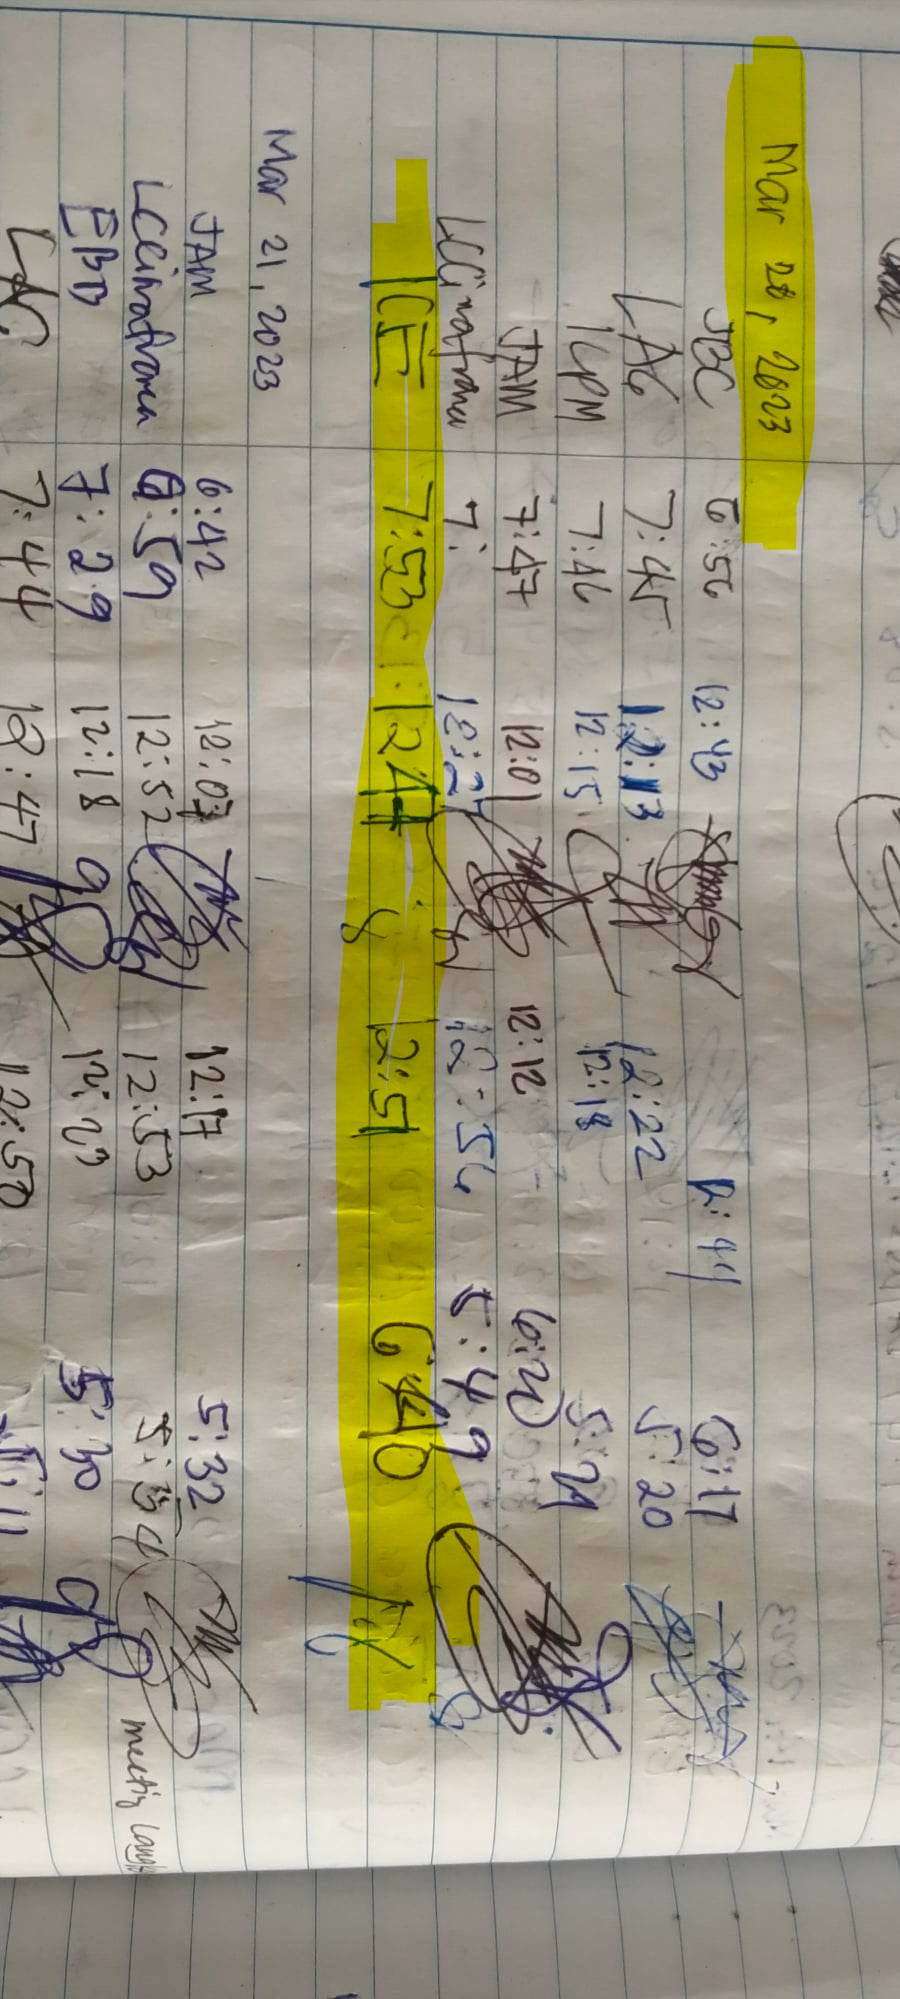 Mar 20, 2023
JBC 6:56 12:43 12:44 6:17
LAG 7:45 12:13 12:22 5:20
ICPM 7:46 12:15 12:18 5:29
JAM 7:47 12:01 12:12 6:20
LCCinafranca 7: 12:27 12:54 5:49
ICE 7:53 12:47 12:51 6:40
Mar 21, 2023
JAM 6:42 12:07 12:17 5:32
LCCinafranca 6:59 12:52 12:53 5:54 meeting
EBD 7:29 12:18 12:20 5:30
LAG 7:44 12:47 12:50 5:11